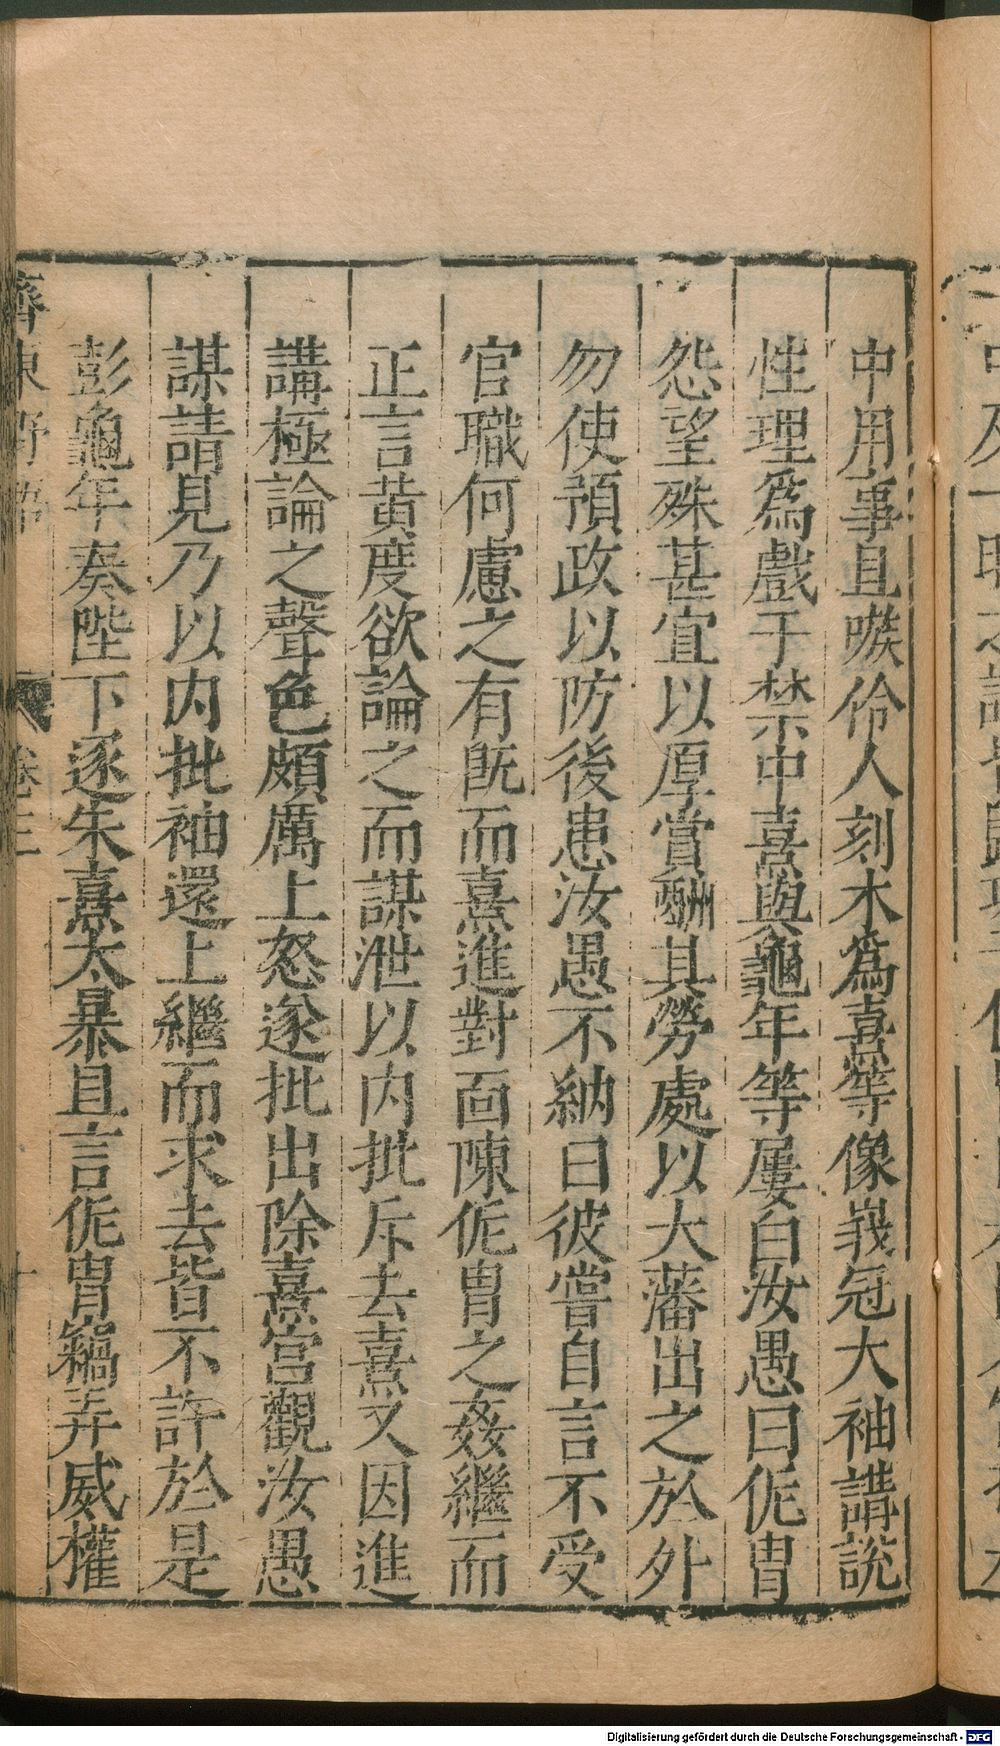 中用事且嗾伶人刻木爲熹等像峩冠大袖講說
性理爲戲于禁中熹與龜年等屢白汝愚曰侂胄
怨望殊甚宜以厚賞酬其勞處以大藩出之於外
勿使預政以防後患汝愚不納曰彼嘗自言不受
官職何慮之有旣而熹進對面陳侂胄之姦繼而
正言黃度欲論之而謀泄以内批斥去熹又因進
講極論之聲色頗厲上怒遂批出除熹宮觀汝愚
謀請見乃以内批袖還上繼而求去皆不許於是
彭龜年奏陛下逐朱熹太暴且言侂胄竊弄威權
齊東野語 卷三 十
Digitalisierung gefördert durch die Deutsche Forschungsgemeinschaft - DFG